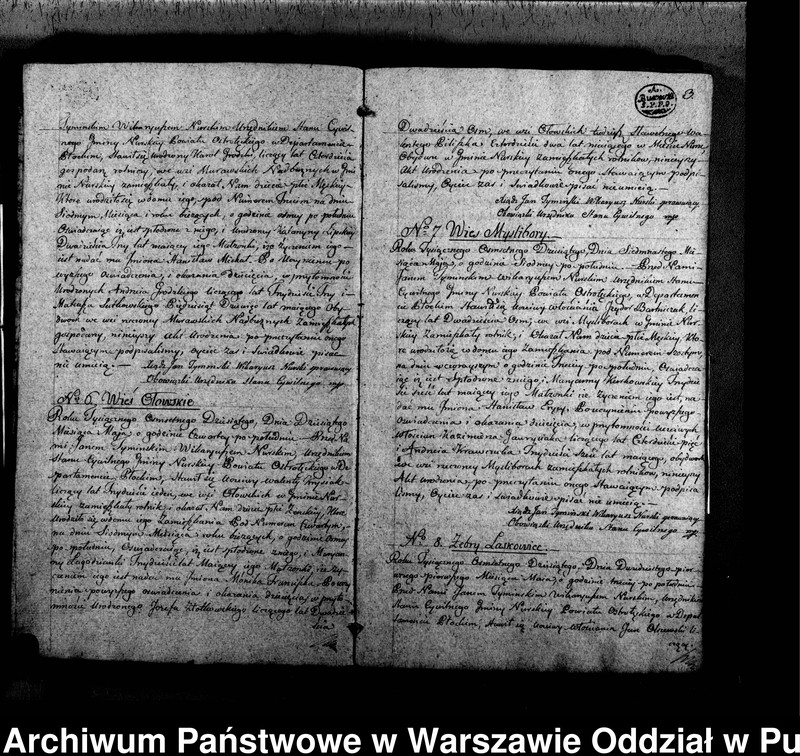 Tyminskim Wikaryuszem Nurskim Urzędnikiem Stanu Cywil
nego Gminy Nurskiy Powiatu Ostrołęckiego w Departamencie
Płockim, Stawił się Urodzony Karol Grodzki, liczący lat Czterdzieści
gospodarz rolniczy, we wsi Murawskich Nadbużnych w Gmi
nie Nurskiy zamieszkały, i okazał Nam dziecie płci Męskiey
Które urodziło się w domu iego, pod Numerem na dniu
Siódmym Miesiąca i roku bieżących, o godzinie ósmy po południu
Oświadczaiąc iż iest spłodzone z niego, i Urodzony Katarzyny Lipskiy
Dwadzieścia Trzy lat maiący iego Małżonki, i że życzeniem iego
iest nadać mu Imiona Stanisław Michał. Po Uczynieniu po
wyższego oświadczenia, i okazania dziecięcia, w przytomności
Urodzonych Andrzeia Grodzkiego liczącego lat Trzydzieści Trzy i
Mateusza Sutkowskiego Pięćdziesiąt Dziewięć lat maiącego Oby
dwóch we wsi rzeczony Murawskich Nadbużnych Zamieszkałych
gospodarzy, ninieyszy Akt Urodzenia po przeczytaniu onego
Stawaiącym podpisaliśmy, Oyciec zaś i Świadkowie pisać
nie umieią. —
Xiądz Jan Tyminski Wikaryusz Nurski sprawuiący
Obowiązki Urzędnika Stanu Cywilnego mp
No 6. Wieś Ołowskie
Roku Tysiącznego Osmsetnego Dziesiątego, Dnia Dziesiątego
Miesiąca Maja o godzinie Czwarty po południu — Przed Na
mi Janem Tyminskim Wikaryuszem Nurskim, Urzędnikiem
Stanu Cywilnego Gminy Nurskiy Powiatu Ostrołęckiego w De
partamencie Płockim, Stawił się Uczciwy Walenty
liczący lat Trzydzieści ieden, we wsi Ołowskich w Gminie Nur
skiy zamieszkały rolnik, i okazał Nam dziecie płci Żeńskiy, Które
Urodziło się w domu iego Zamieszkania Pod Numerem Czwartym,
na dniu Siódmym Miesiąca i roku bieżących, o godzinie Osmy
po południu, Oświadczaiąc iż iest spłodzone z niego, i Maryan
ny Trzydzieści lat Maiący iego Małżonki, i że ży
czeniem iego iest nadać mu Imiona Monika Franciszka. Po uczy
nieniu powyższego oświadczenia i okazania Dziecięcia, w przyto
mności Urodzonego Józefa Żółtkowskiego liczącego lat Dwadzie
ścia
3.
Dwadzieścia Osm, we wsi Ołowskich tudzież Sławetnego Wa
lentego Czterdzieści dwa lat maiącego w Mieście Nurze
Obydwu w Gminie Nurskiy zamieszkałych rolników, ninieyszy
Akt Urodzenia po przeczytaniu onego Stawaiącym podpi
saliśmy, Oyciec zaś i Świadkowie pisać nie umieią —
Xiądz Jan Tyminski Wikaryusz Nurski sprawuiący
Obowiązki Urzędnika Stanu Cywilnego mp
No 7 Wieś Myslibory.
Roku Tysiącznego Osmsetnego Dziesiątego, Dnia Siedmnastego Mie
siąca Maja, o godzinie Siódmy po południu. — Przed Nami
Janem Tyminskim Wikaryuszem Nurskim, Urzędnikiem Stanu
Cywilnego Gminy Nurskiy Powiatu Ostrołęckiego, w Departamen
cie Płockim Stawił się Uczciwy włościanin Izydor li
czący lat Dwadzieścia Osm, we wsi Mysliborach w Gminie Nur
skiy Zamieszkały rolnik, i Okazał Nam dziecie płci Męskiey, Któ
re urodziło się w domu iego Zamieszkania pod Numerem Szostym,
na dniu wczorayszym o godzinie Trzecy po południu, Oświadcza
iąc iż iest Spłodzone z niego, i Maryanny Kurkowskiy Trzydzie
ści sześć lat maiący iego Małżonki i że życzeniem iego iest, na
dać mu Imiona Stanisław Po uczynieniu powyższego
oświadczenia i okazania dziecięcia, w przytomności Uczciwych
Włościan Kazimierza liczącego lat Czterdzieści pięć
i Andrzeia Krawczuka Trzydzieści Sześć lat maiącego, obydwóch
we wsi rzeczony Mysliborach zamieszkałych rolników, ninieyszy
Akt urodzenia, po przeczytaniu onego Stawaiącym podpisa
liśmy, Oyciec zaś i Świadkowie pisać nie umieią —
Xiądz Jan Tyminski Wikaryusz Nurski sprawuiący
Obowiązki Urzędnika Stanu Cywilnego mp
No 8. Żebry Laskowice
Roku Tysiącznego Osmsetnego Dziesiątego, Dnia Dwudziestego pier
wszego Miesiąca Maja, o godzinie trzeciy po południu
Przed Nami Janem Tyminskim Wikaryuszem Nurskim, Urzędnikiem
Stanu Cywilnego Gminy Nurskiy Powiatu Ostrołęckiego w Depar
tamencie Płockim, Stawił się Uczciwy włościanin Jan Olszewski li
czący
Archiwum Państwowe w Warszawie Oddział w Pu